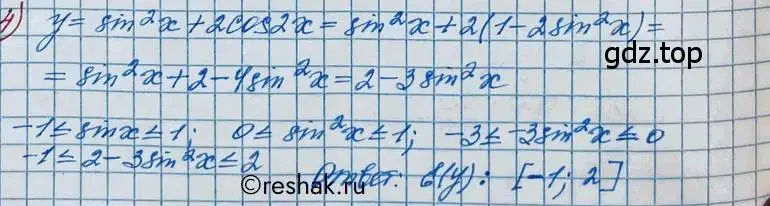 4) y = sin²x + 2cos2x = sin²x + 2(1 - 2sin²x) =
gdz.top
= sin²x + 2 - 4sin²x = 2 - 3sin²x
-1 ≤ sinx ≤ 1; 0 ≤ sin²x ≤ 1; -3 ≤ -3sin²x ≤ 0
-1 ≤ 2 - 3sin²x ≤ 2 Ответ: E(y): [-1; 2]
©reshak.ru